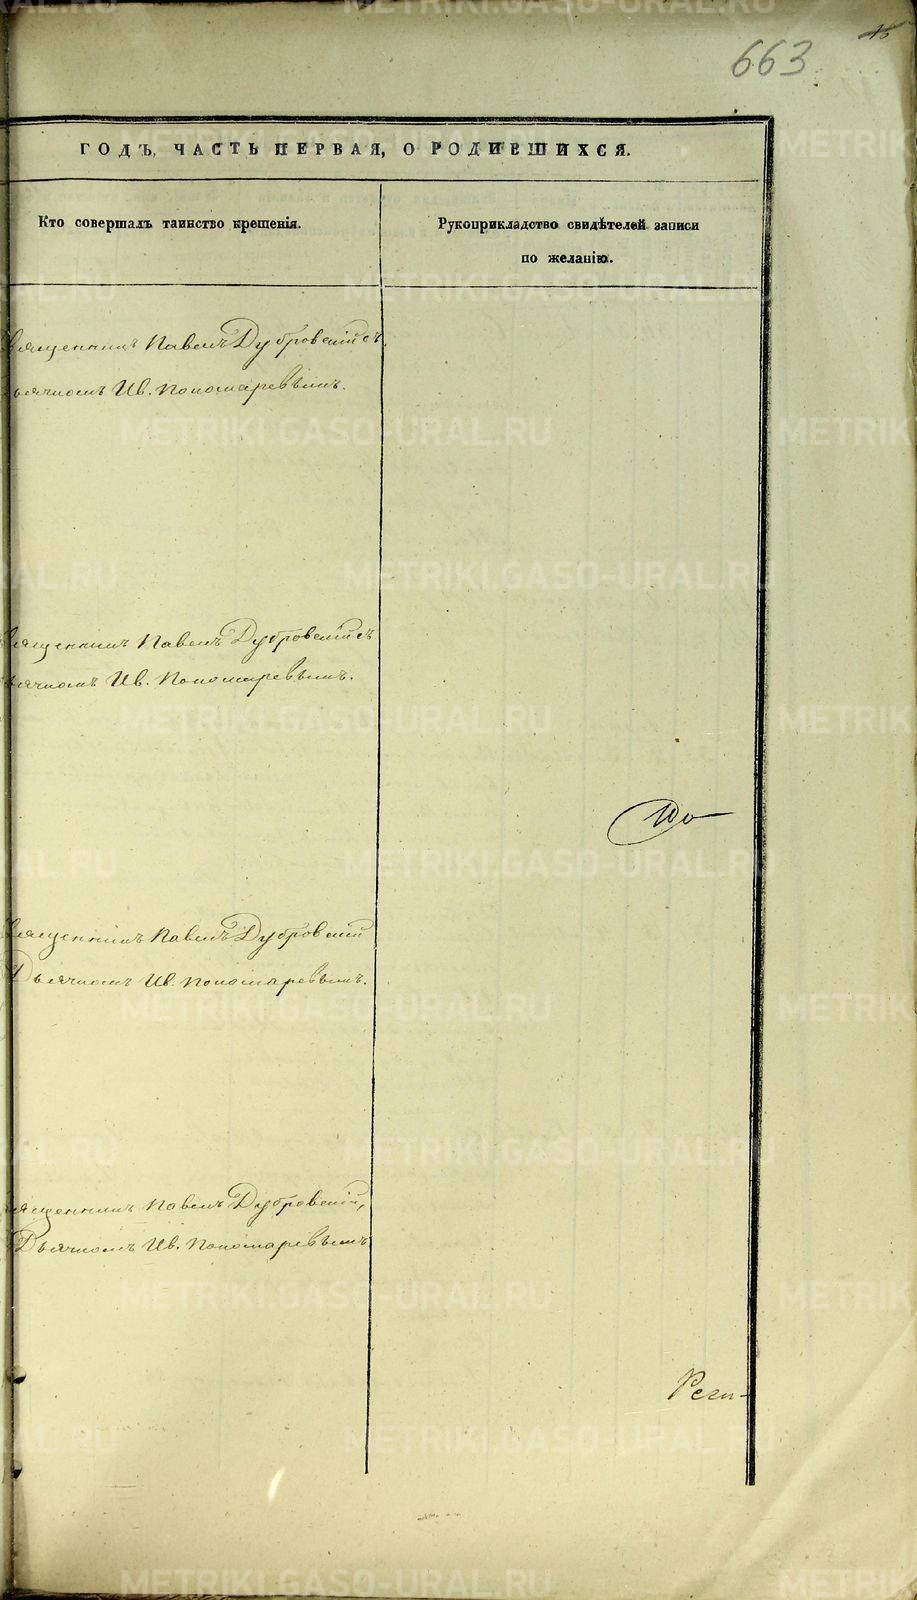 663
ГОДЪ, ЧАСТЬ ПЕРВАЯ, О РОДИВШИХСЯ.
Кто совершалъ таинство крещенія.
Рукоприкладство свидѣтелей записи
по желанію.
вященникъ Павелъ Дубровскій съ
ьячкомъ Ив. Пономаревымъ.
вященникъ Павелъ Дубровскій съ
ьячкомъ Ив. Пономаревымъ.
вященникъ Павелъ Дубровскій
Дьячкомъ Ив. Пономаревымъ.
ященникъ Павелъ Дубровскій,
Дьячкомъ Ив. Пономаревымъ
METRIKI.GASO-URAL.RU